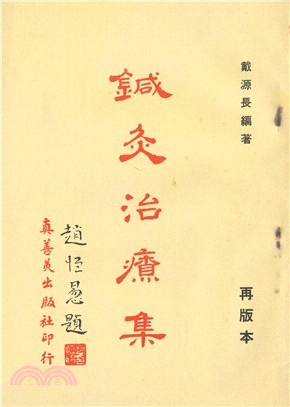 戴源長編著
鍼灸治療集
再版本
趙恒惖題
真善美出版社印行
三民網路書店